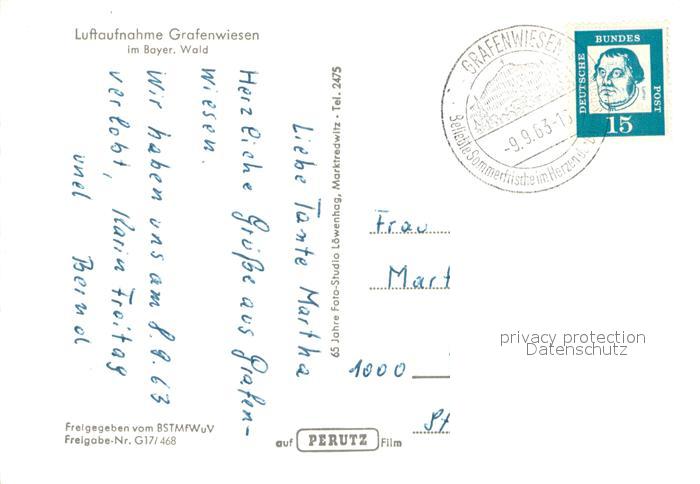 Luftaufnahme Grafenwiesen
im Bayer. Wald
Liebe Tante Martha
Herzliche Grüße aus Grafen-
wiesen.
Wir haben uns am 8.9.63
verlobt, Karin Freitag
und Bernd
Freigegeben vom BSTMfWuV
Freigabe-Nr. G17/468
65 Jahre Foto-Studio Löwenhag, Marktredwitz · Tel. 2475
auf PERUTZ Film
GRAFENWIESEN
-9.9.63-13
Beliebte Sommerfrische im Herzen d.
DEUTSCHE
BUNDES
POST
15
Frau
Mart
1000
privacy protection
Datenschutz